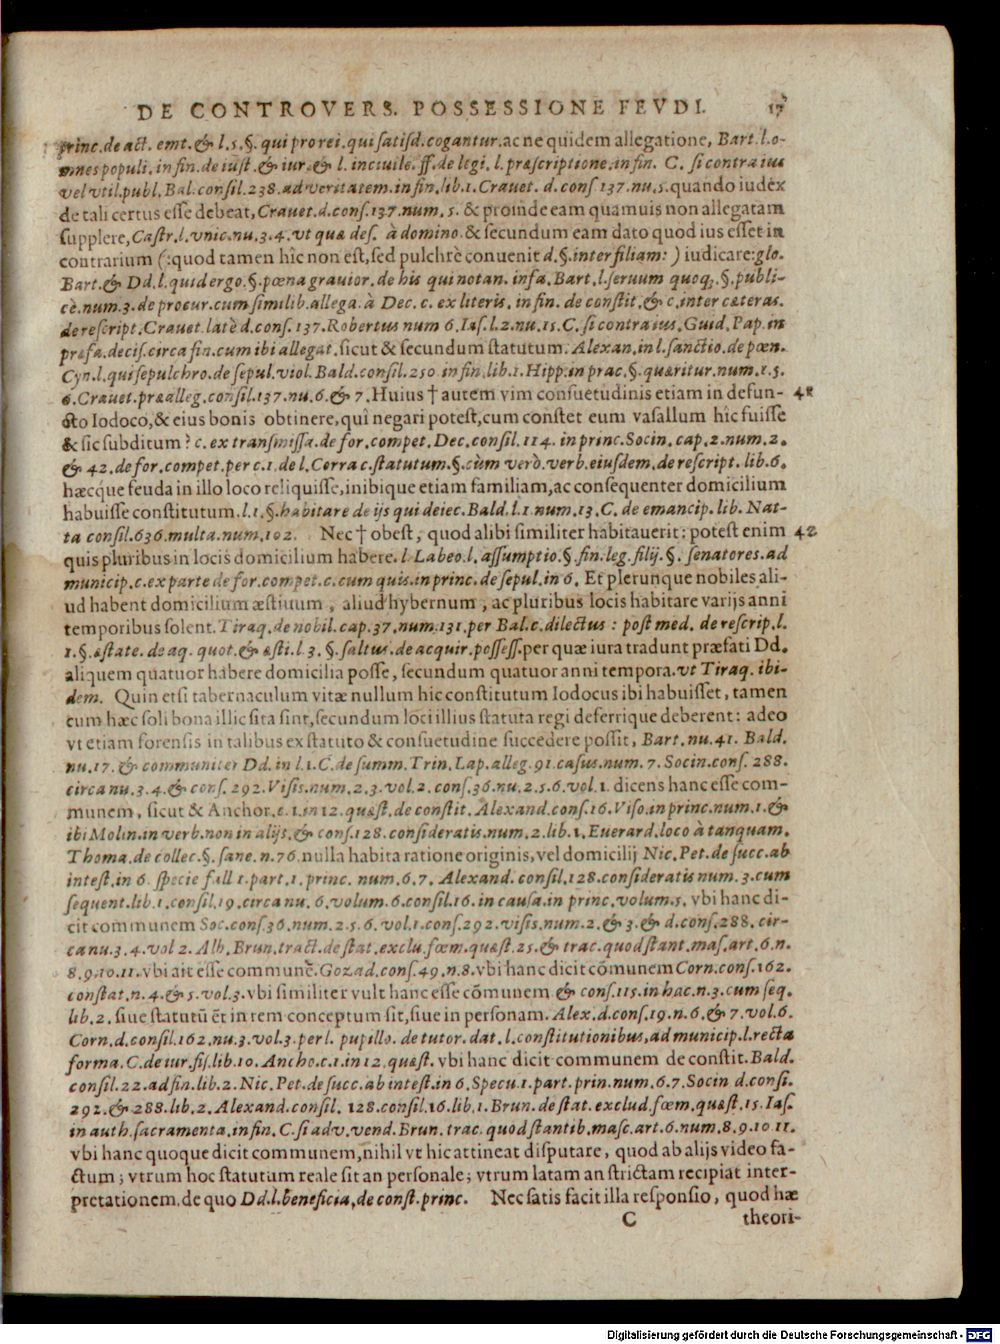 DE CONTROVERS. POSSESSIONE FEVDI. 17
princ.de act. emt.& l.5.§. qui pro rei.qui satisd.cogantur.ac ne quidem allegatione, Bart.l.o-
mnes populi.in fin.de iust.& iur.& l. inciuile.ff.de legi. l.præscriptione.in fin. C. si contra ius
vel vtil.publ.Bal.consil.238.ad veritatem.in fin.lib.1.Crauet. d.cons 137.nu.5.quando iudex
de tali certus esse debeat,Crauet.d.cons.137.num.5. & proinde eam quamuis non allegatam
supplere,Castr.l.vnic.nu.3.4.vt quæ des. à domino.& secundum eam dato quod ius esset in
contrarium (:quod tamen hîc non est,sed pulchrè conuenit d.§.inter filiam:) iudicare:glo.
Bart.& Dd.l.quid ergo.§.pœna grauior.de his qui notan. infa.Bart.l.seruum quoq;.§.publi-
cè.num.3.de procur.cum similib.allega.à Dec. c. ex literis. in fin. de constit.& c.inter cæteras.
de rescript.Crauet.latè d.cons.137.Robertus num 6.Ias.l.2.nu.15.C.si contra ius.Guid.Pap.in
præfa.decis.circa fin.cum ibi allegat.sicut & secundum statutum. Alexan.in l.sanctio.de pœn.
Cyn.l.qui sepulchro.de sepul.viol.Bald.consil.250.in fin.lib.1.Hipp.in prac.§.quæritur.num.1.5.
6.Crauet.præalleg.consil.137.nu.6.& 7.Huius † autem vim consuetudinis etiam in defun- 41
cto Iodoco,& eius bonis obtinere,quî negari potest,cum constet eum vasallum hîc fuisse
& sic subditum? c. ex transmissa.de for.compet.Dec.consil.114. in princ.Socin.cap.2.num.2.
& 42.de for.compet.per c.1.de l.Cerra c.statutum.§.cùm verò.verb.eiusdem.de rescript. lib.6.
hæcque feuda in illo loco reliquisse,inibique etiam familiam,ac consequenter domicilium
habuisse constitutum.l.1.§.habitare de ijs qui deiec.Bald.l.1.num.13.C. de emancip.lib. Nat-
ta consil.636.multa.num.102. Nec † obest, quod alibi similiter habitauerit: potest enim 42
quis pluribus in locis domicilium habere.l.Labeo.l.assumptio.§.fin.leg.filij.§. senatores.ad
municip.c.ex parte de for.compet.c.cum quis.in princ.de sepul.in 6. Et plerunque nobiles ali-
ud habent domicilium æstiuum, aliud hybernum, ac pluribus locis habitare varijs anni
temporibus solent.Tiraq.de nobil.cap.37.num.131.per Bal.c.dilectus: post med. de rescrip.l.
1.§.æstate. de aq. quot.& æsti.l 3.§.saltus.de acquir.possess.per quæ iura tradunt præfati Dd.
aliquem quatuor habere domicilia posse, secundum quatuor anni tempora.vt Tiraq.ibi-
dem. Quin etsi tabernaculum vitæ nullum hic constitutum Iodocus ibi habuisset, tamen
cum hæc soli bona illic sita sint,secundum loci illius statuta regi deferrique deberent: adeo
vt etiam forensis in talibus ex statuto & consuetudine succedere possit, Bart.nu.41. Bald.
nu.17.& communiter Dd.in l.1.C.de summ.Trin.Lap.alleg.91.casus.num.7.Socin.cons.288.
circa nu.3.4.& cons.292.Visis.num.2.3.vol.2.cons.36.nu.2.5.6.vol.1.dicens hanc esse com-
munem, sicut & Anchor.c.1.in 12.quæst.de constit. Alexand.cons.16.Viso in princ.num.1.&
ibi Molin.in verb.non in alijs.& cons.128.consideratis.num.2.lib.1.Euerard.loco à tanquam.
Thoma.de collec.§.sane.n.76.nulla habita ratione originis,vel domicilij Nic.Pet.de succ.ab
intest.in 6. specie fall 1.part.1.princ. num.6.7. Alexand. consil.128.consideratis num.3.cum
sequent.lib.1.consil.19.circa nu.6.volum.6.consil.16. in causa.in princ.volum.5. vbi hanc di-
cit communem Soc.cons.36.num.2.5.6.vol.1.cons.292.visis.num.2.& 3.& d.cons.288.cir-
ca nu.3.4.vol 2. Alb.Brun.tract.de stat.exclu.fœm.quæst.25.& trac.quod stant.mas.art.6.n.
8.9.10.11.vbi ait esse communē.Gozad.cons.49.n.8.vbi hanc dicit cōmunem Corn.cons.162.
constat.n.4.& 5.vol.3.vbi similiter vult hanc esse cōmunem & cons.115.in hac.n.3.cum seq.
lib.2. siue statutū ēt in rem conceptum sit,siue in personam. Alex.d.cons.19.n.6.& 7.vol.6.
Corn.d.consil.162.nu.3.vol.3.per l. pupillo. de tutor.dat.l.constitutionibus,ad municip.l.recta
forma.C.de iur.fis.lib.10. Ancho.c.1.in 12.quæst. vbi hanc dicit communem de constit.Bald.
consil.22.ad fin.lib.2.Nic.Pet.de succ.ab intest.in 6.Specu.1.part.prin.num.6.7.Socin d.consi.
292.& 288.lib.2. Alexand.consil. 128.consil.16.lib.1.Brun.de stat.exclud.fœm.quæst.15.Ias.
in auth.sacramenta.in fin.C.si adv.vend.Brun.trac.quod stantib.masc.art.6.num.8.9.10 11.
vbi hanc quoque dicit communem,nihil vt hic attineat disputare, quod ab alijs video fa-
ctum; vtrum hoc statutum reale sit an personale; vtrum latam an strictam recipiat inter-
pretationem.de quo Dd.l.beneficia,de const.princ. Nec satis facit illa responsio, quod hæ
C theori-
Digitalisierung gefördert durch die Deutsche Forschungsgemeinschaft - DFG